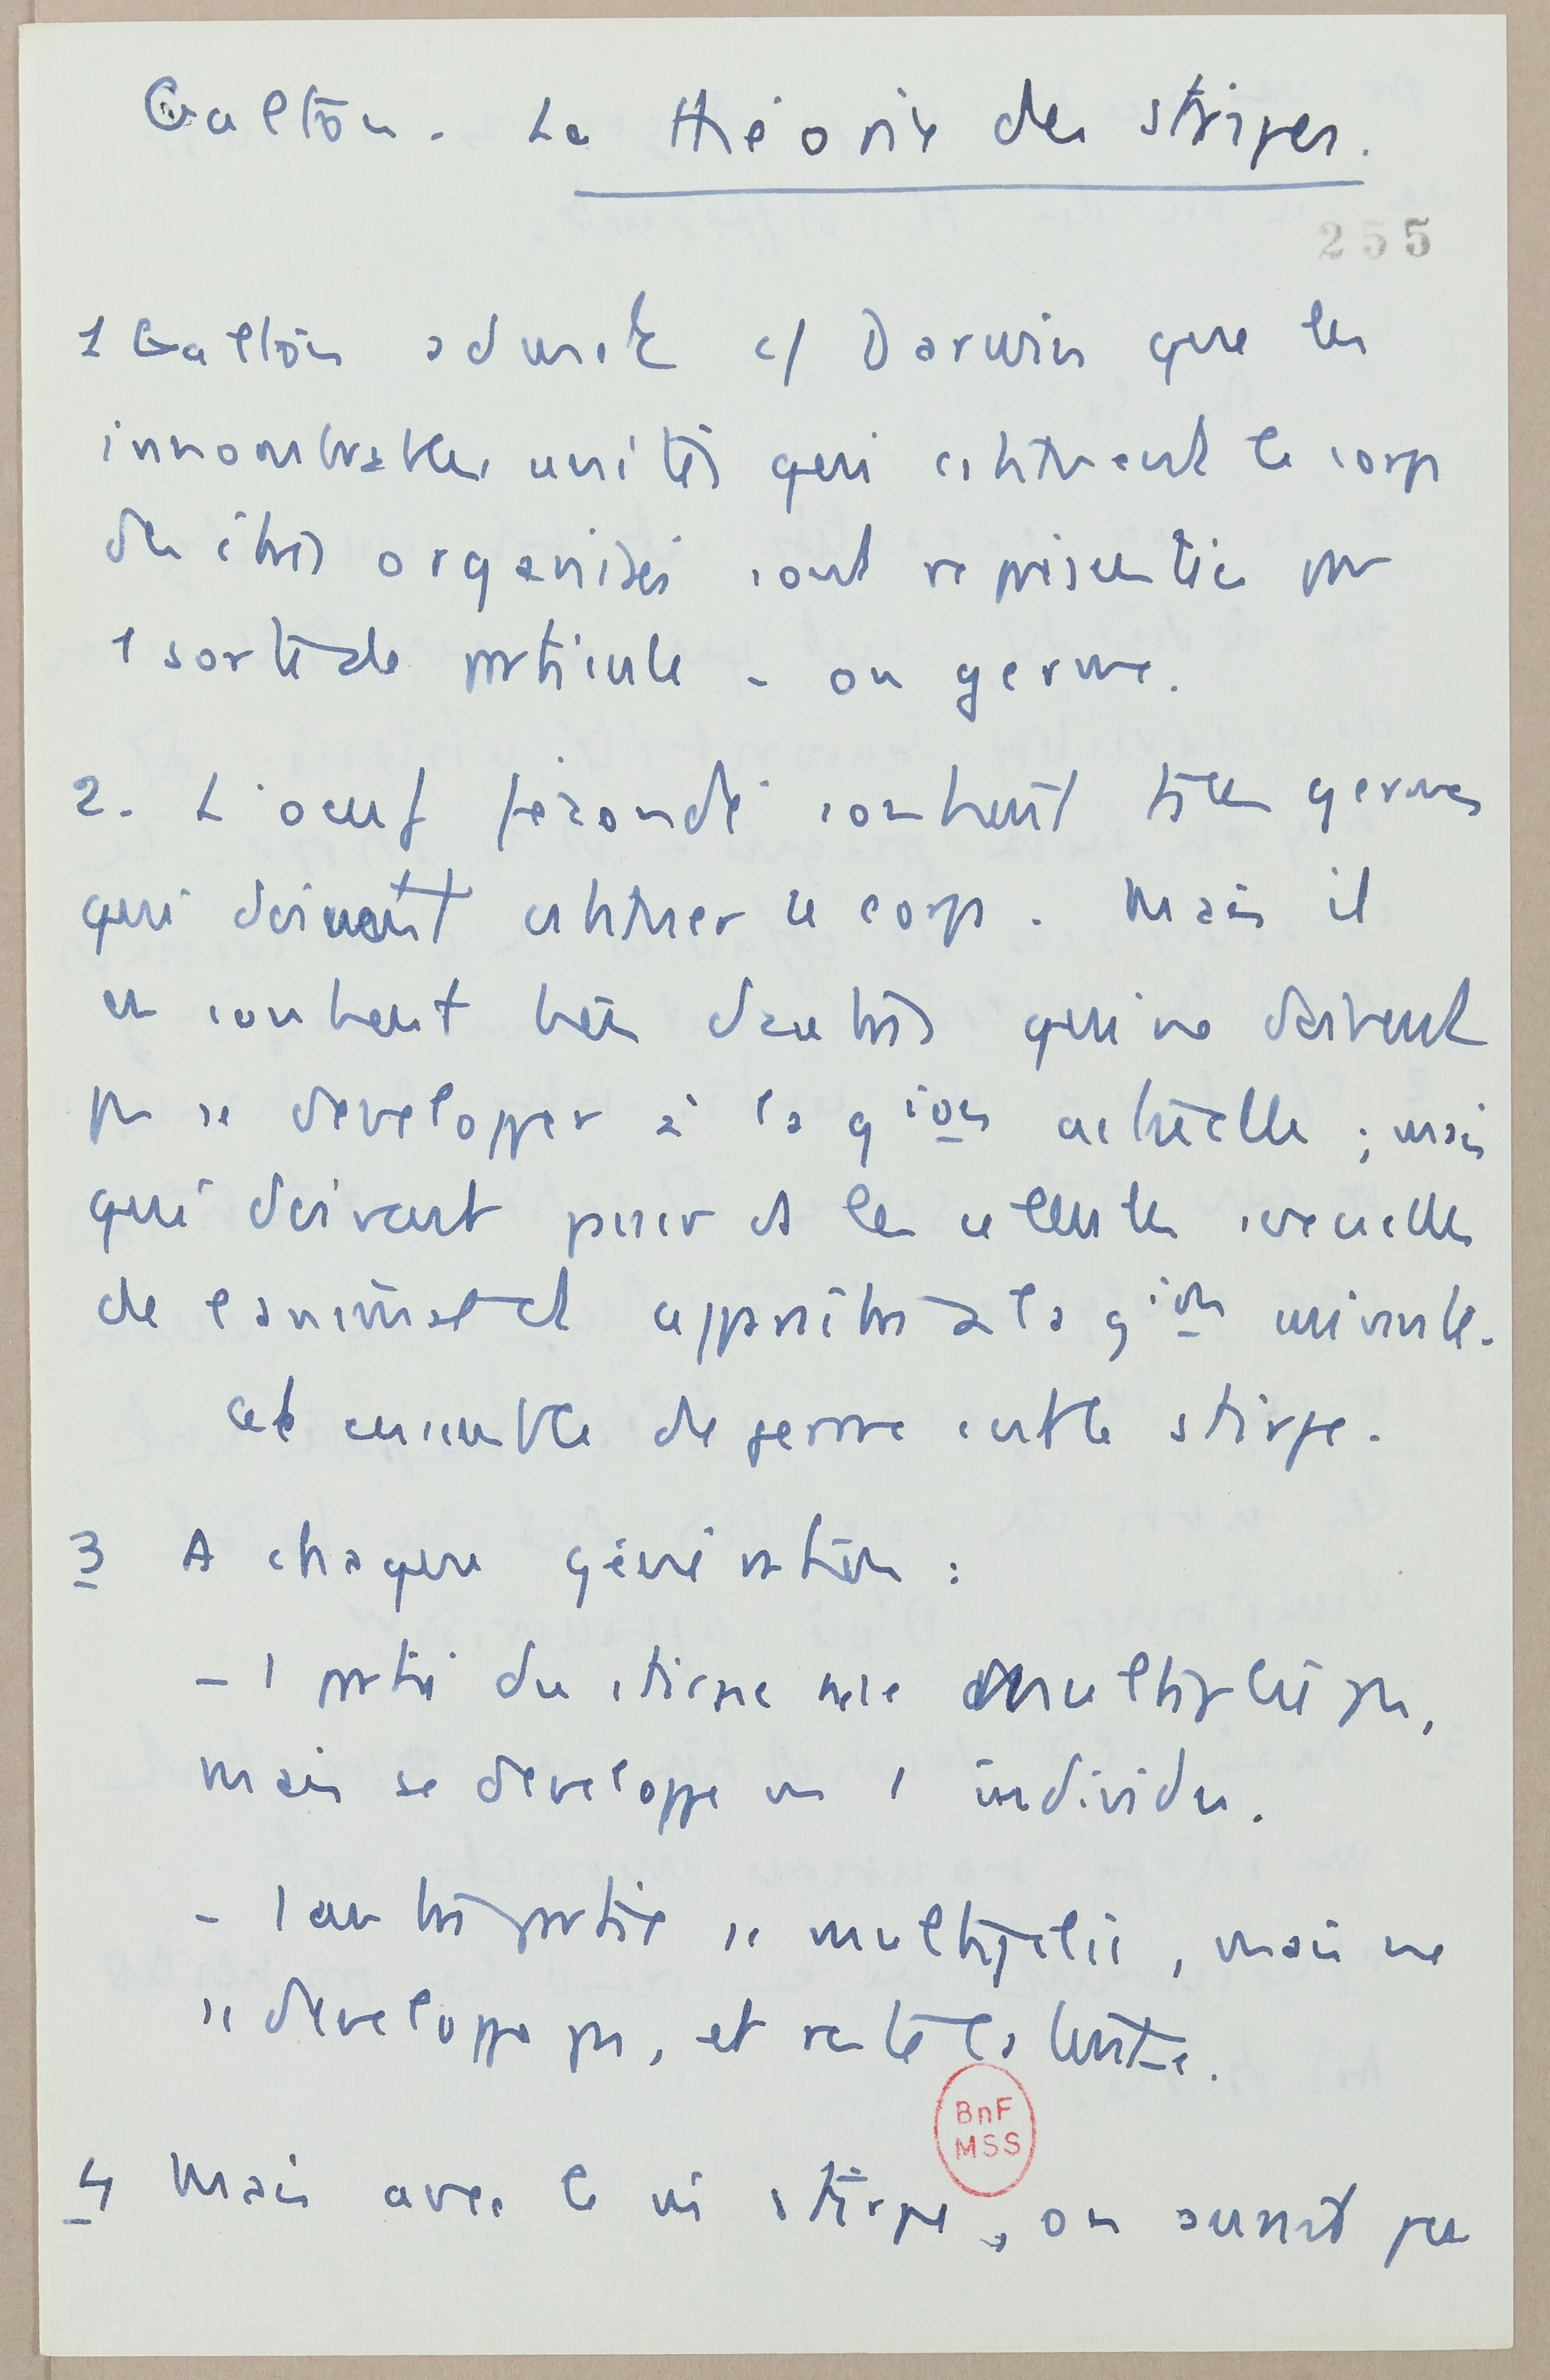 Galton. La théorie des stirpes.
255
1 Galton admet c/ Darwin que les
innombrables unités qui constituent le corps
des êtres organisés sont représentées par
1 sorte de particule - ou germe.
2. L'oeuf fécondé contient tous les germes
qui doivent constituer le corps. Mais il
en contient bien d'autres qui ne doivent
pas se developper à la gion actuelle ; mais
qui doivent passer ds les cellules sexuelles
de l'animal et apparaître à la gion suivante.
Cet ensemble de germe est le stirpe.
3 A chaque génération :
- 1 partie du stirpe ne se multiplie pas,
mais se developpe en 1 individu.
- 1 autre partie se multiplie, mais ne
se developpe pas, et reste latente.
BnF
MSS
4 Mais avec le m stirpe, on aurait pu